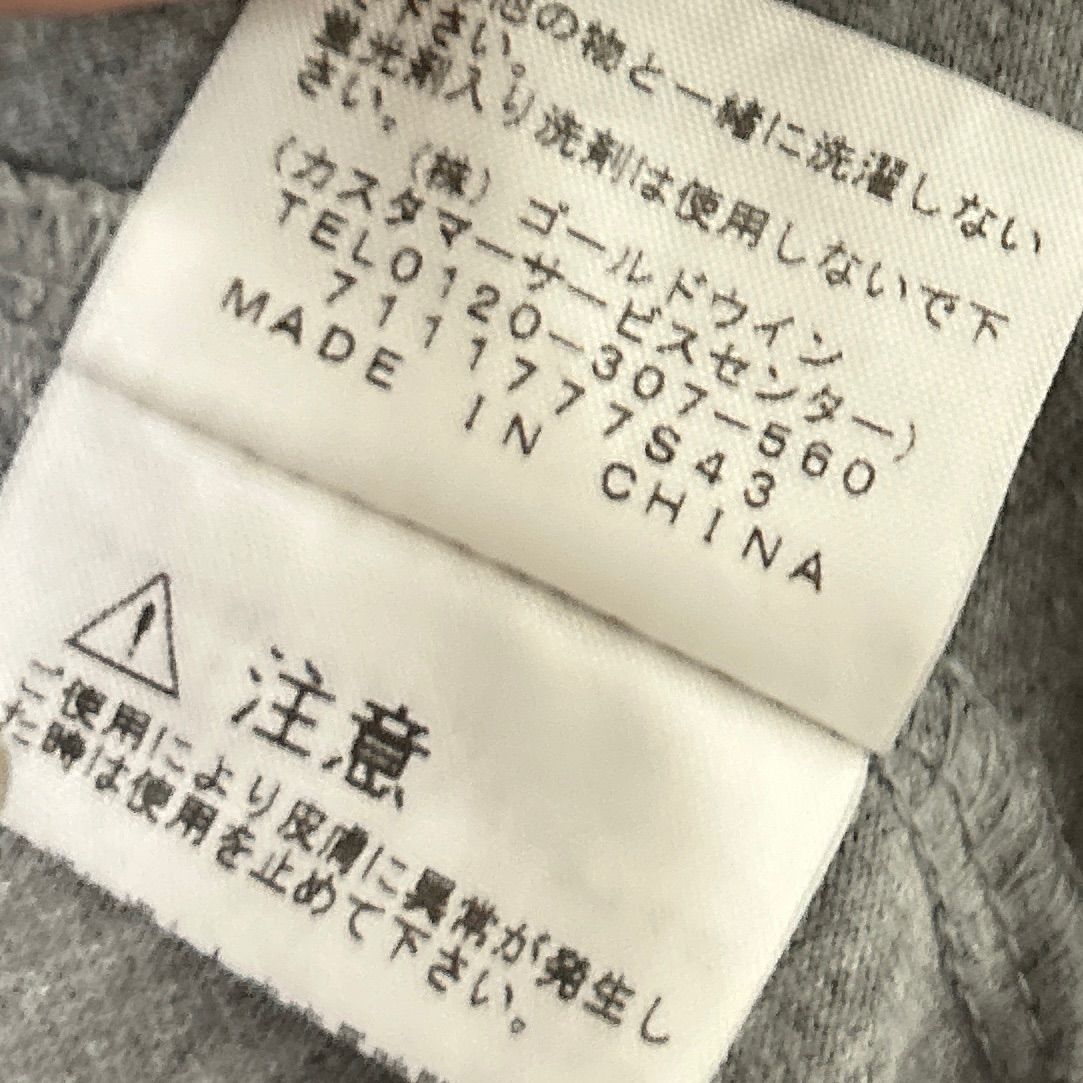 の物と一緒に洗濯しない
下さい。
蛍光剤入り洗剤は使用しないで下
さい。
(株)ゴールドウイン
(カスタマーサービスセンター)
TEL0120-307-560
7111777S43
MADE IN CHINA
注意
ご使用により皮膚に異常が発生し
た時は使用を止めて下さい。